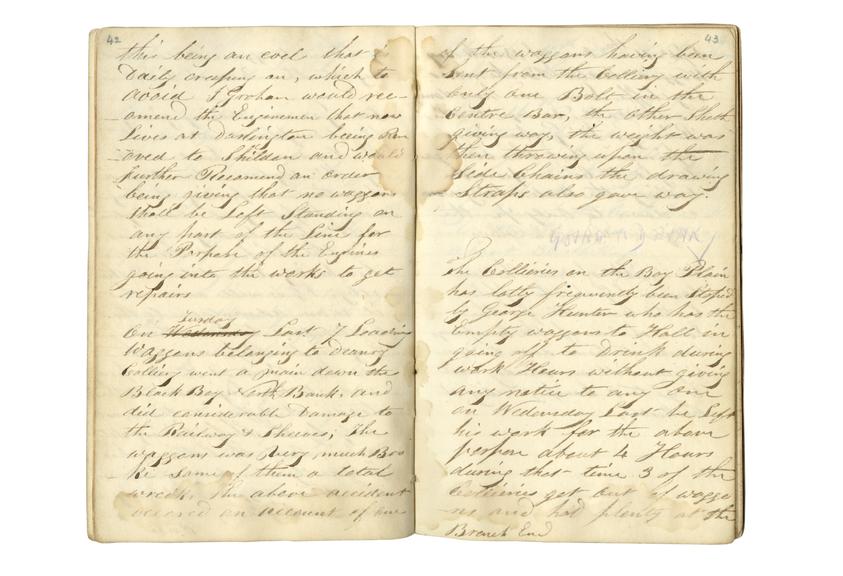 42
this being an evel that is
Daily creeping on, which to
avoid J Grohan would rec-
omend the Enginemen that now
Lives at Darlington beeing Rem
oved to Shildon and would
further Recamend an order
being giving that no waggons
shall be Left Standing on
any part of the Line for
the Porpose of the Engines
going into the works to get
repairs
Tusday
On Wedensday Last 7 Loading
Waggons belonging to Deanry
Colliery went a main down the
Black Boy North Bank, and
did considerable Damage to
the Railway & Sheaves; The
waggons was very much Broo
ke some of them a total
wreck. The above accident
occured on account of one
43
of the waggons having been
sent from the Colliery with
only one Bolt in the
Centre Bar, the other Sheth
giving way, the weight was
then throwing upon the
Side Chains the drawing
Straps also gave way.
The Collieries on the Boy Plain
has latly frequently been Stoped
by George Hunter who has the
Empty waggons to Hall in
going off to Drink during
work Hours without giving
any notice to any one
on Wedensday Last he Left
his work for the above
porpose about 4 Hours
during that time 3 of the
Collieries get out of waggo
ns and had plenty at the
Branch End